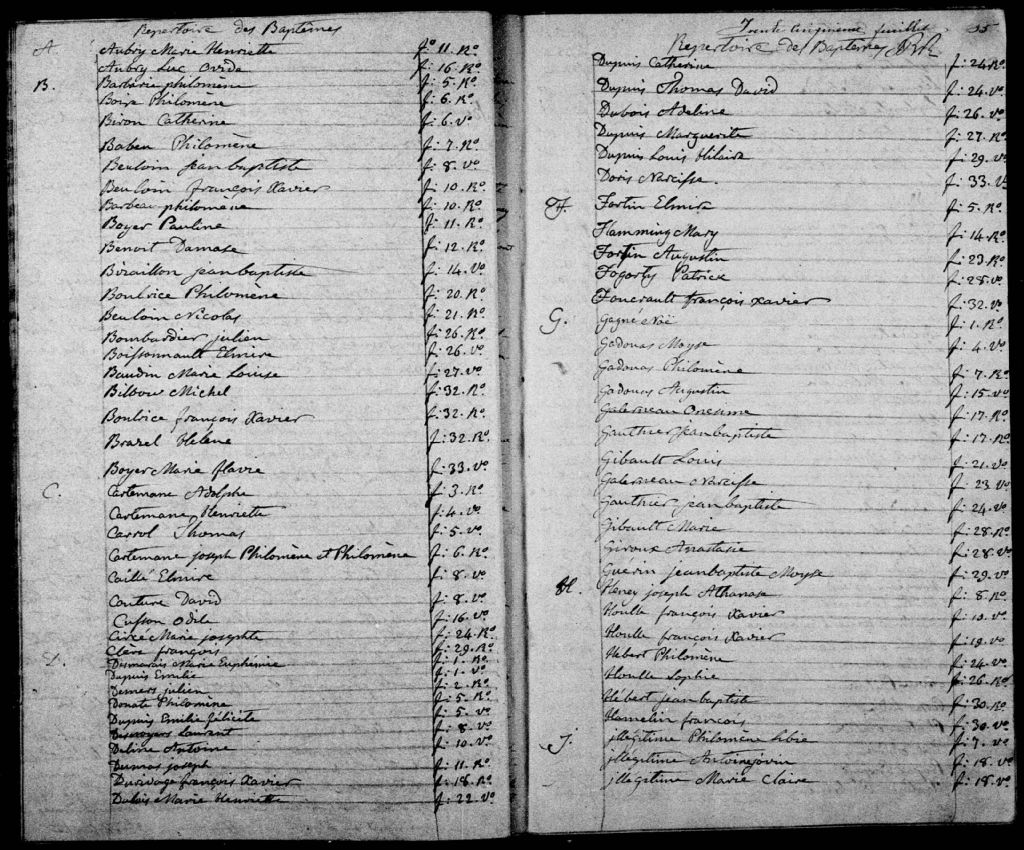 Repertoire des Baptêmes
A. Aubry Marie Henriette fo 11. Ro.
Aubry Luc Ovide f: 16. Ro.
B. Barbarie philomène f: 5. Ro.
Boire Philomène f: 6. Ro.
Biron Catherine f: 6. Vo
Babeu Philomène f: 7. Ro
Beuloin jean baptiste f: 8. Vo
Beuloin françois Xavier f: 10. Ro.
Barbeau philomène f: 10. Ro.
Boyer Pauline f: 11. Ro.
Benoit Damase f: 12. Ro.
Bizaillon jean baptiste f: 14. Vo
Boutrice Philomène f: 20. Ro.
Beuloin Nicolas f: 21. Ro.
Bombardier julien f: 26. Ro.
Boissonnault Elmire f: 26. Vo
Baudin Marie Louise f: 27. Vo
Bilbow Michel f: 32. Ro.
Boutrice françois Xavier f: 32. Ro.
Brazel Hélène f: 32. Ro.
Boyer Marie flavie f: 33. Vo
C. Cartemane Adolphe f: 3. Ro.
Cartemane Henriette f: 4. Vo
Carrol Thomas f: 5. Vo
Cartemane joseph Philomène et Philomène f: 6. Ro.
Caillé Elmire f: 8. Vo
Couture David f: 8. Vo
Cusson Odile f: 16. Vo
Circé Marie josephte f: 24. Ro.
Clère françois f: 29. Ro.
D. Desmarais Marie Euphémie f: 1. Ro.
Dupuis Emilie f: 1. Vo
Demers julien f: 2. Ro.
Donate Philomène f: 5. Ro.
Dupuis Emilie félicité f: 5. Vo
Desnoyers Laurent f: 8. Vo
Deline Antoine f: 10. Vo
Dumas joseph f: 11. Ro.
Durivage françois Xavier f: 18. Ro.
Dubois Marie Henriette f: 22. Vo
Trente Cinquième feuillet 35
Repertoire des Baptêmes
Dupuis Catherine f: 24. Ro.
Dupuis Thomas David f: 24. Vo
Dubois Adeline f: 26. Vo
Dupuis Marguerite f: 27. Ro
Dupuis Louis Hilaire f: 29. Vo
Doris Narcisse. f: 33. Vo
F. Fortin Elmire f: 5. Ro.
Flamming Mary f: 14. Ro.
Fortin Augustin f: 23. Ro.
Fogarty Patrick f: 28. Vo
Foucrault françois Xavier f: 32. Vo
G. Gagné Noë f: 1. Ro.
Gadouas Moyse f: 4. Vo
Gadouas Philomène f: 7. Ro.
Gadouas Augustin f: 15. Vo
Galerneau Onesime f: 17. Ro.
Gauthier jean baptiste f: 17. Ro.
Gibault Louis f: 21. Vo
Galerneau Narcisse f: 23 Vo
Gauthier jean baptiste f: 24. Vo
Gibault Marie f: 28. Ro.
Giroux Anastasie f: 28. Vo
Guerin jean baptiste Moyse f: 29. Vo
H. Heney joseph Athanase f: 8. Ro.
Houlle françois Xavier f: 10. Vo
Houlle françois Xavier f: 19. Vo
Hebert Philomène f: 24. Vo
Houlle Sophie f: 26. Ro.
Hébert jean baptiste f: 30. Ro
Hamelin françois f: 30. Vo
J. jllégitime Philomène f: 7. Vo
jllégitime f: 18. Vo
jllegitime Marie Claire f: 18. Vo